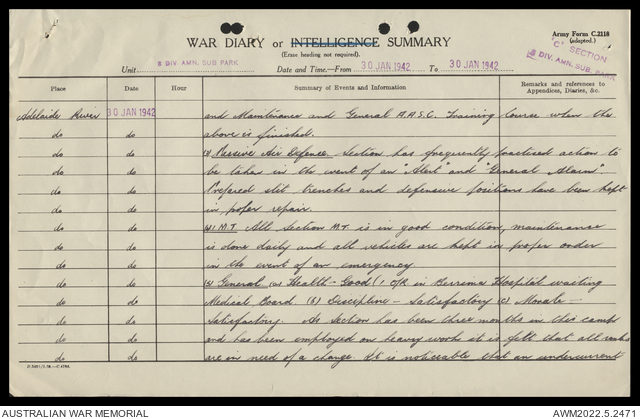 Army Form C.2118
(adapted.)
WAR DIARY or INTELLIGENCE SUMMARY
(Erase heading not required).
"C" SECTION
8 DIV. AMN. SUB. PARK
Unit 8 DIV. AMN. SUB. PARK Date and Time.—From 30 JAN 1942 To 30 JAN 1942
Place Date Hour Summary of Events and Information Remarks and references to Appendices, Diaries, &c.
Adelaide River 30 JAN 1942 and Maintenance and General A.A.S.C. Training Course when the
do do above is finished.
do do Passive Air Defence. Section has frequently practised action to
do do be taken in the event of an "Alert" and "General Alarm".
do do Prepared slit trenches and defensive positions have been kept
do do in proper repair.
do do M.T. All Section M.T. is in good condition, maintenance
do do is done daily and all vehicles are kept in proper order
do do in the event of an emergency
do do General (a) Health - Good (1 O/R in Berrima Hospital waiting
do do Medical Board (b) Discipline - Satisfactory (c) Morale -
do do Satisfactory. As Section has been three months in this camp
do do and has been employed on heavy work it is felt that all ranks
do do are in need of a change. It is noticeable that an undercurrent
AUSTRALIAN WAR MEMORIAL
AWM2022.5.2471